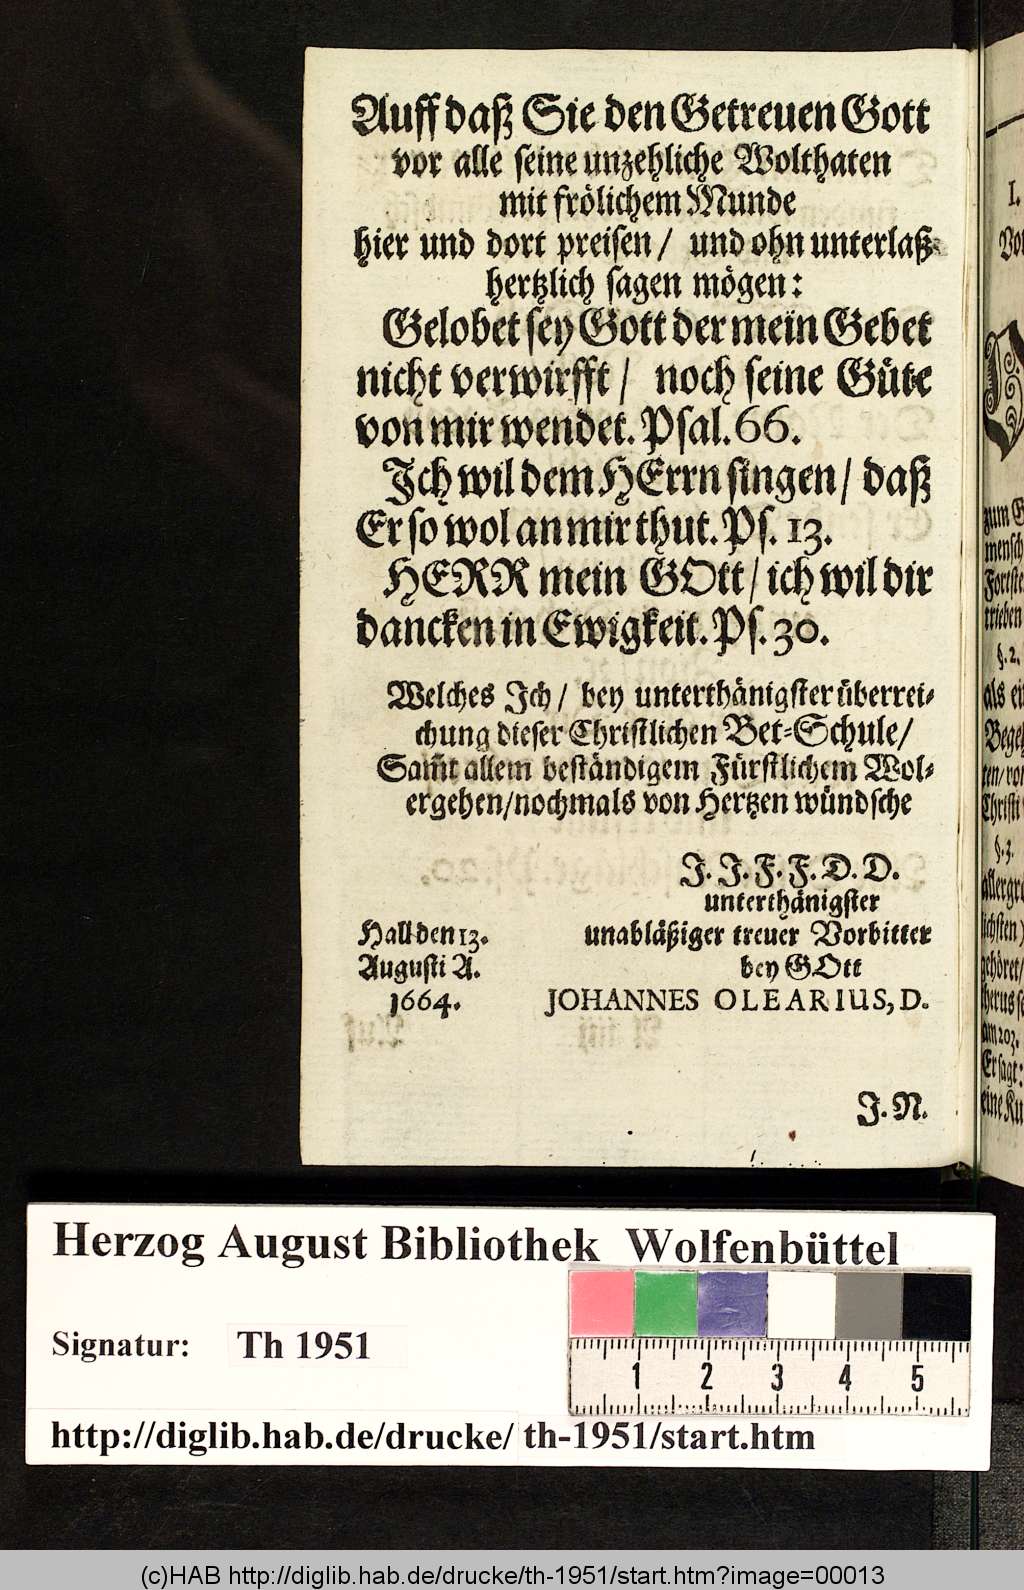 Auff daß Sie den Getreuen Gott
vor alle seine unzehliche Wolthaten
mit frölichem Munde
hier und dort preisen / und ohn unterlaß
hertzlich sagen mögen:
Gelobet sey Gott der mein Gebet
nicht verwirfft / noch seine Güte
von mir wendet. Psal. 66.
Ich wil dem HErrn singen / daß
Er so wol an mir thut. Ps. 13.
HERR mein GOtt / ich wil dir
dancken in Ewigkeit. Ps. 30.
Welches Ich / bey unterthänigster überrei-
chung dieser Christlichen Bet-Schule /
Sam̃t allem beständigem Fürstlichem Wol-
ergehen / nochmals von Hertzen wündsche
J. J. F. F. D. D.
unterthänigster
unabläßiger treuer Vorbitter
bey GOtt
JOHANNES OLEARIUS, D.
Hall den 13.
Augusti A.
1664.
J. N.
I.
zum
trieben
§. 2.
als
§. 3.
am 203.
Er sagt:
eine
Herzog August Bibliothek Wolfenbüttel
Signatur: Th 1951
1 2 3 4 5
http://diglib.hab.de/drucke/ th-1951/start.htm
(c)HAB http://diglib.hab.de/drucke/th-1951/start.htm?image=00013